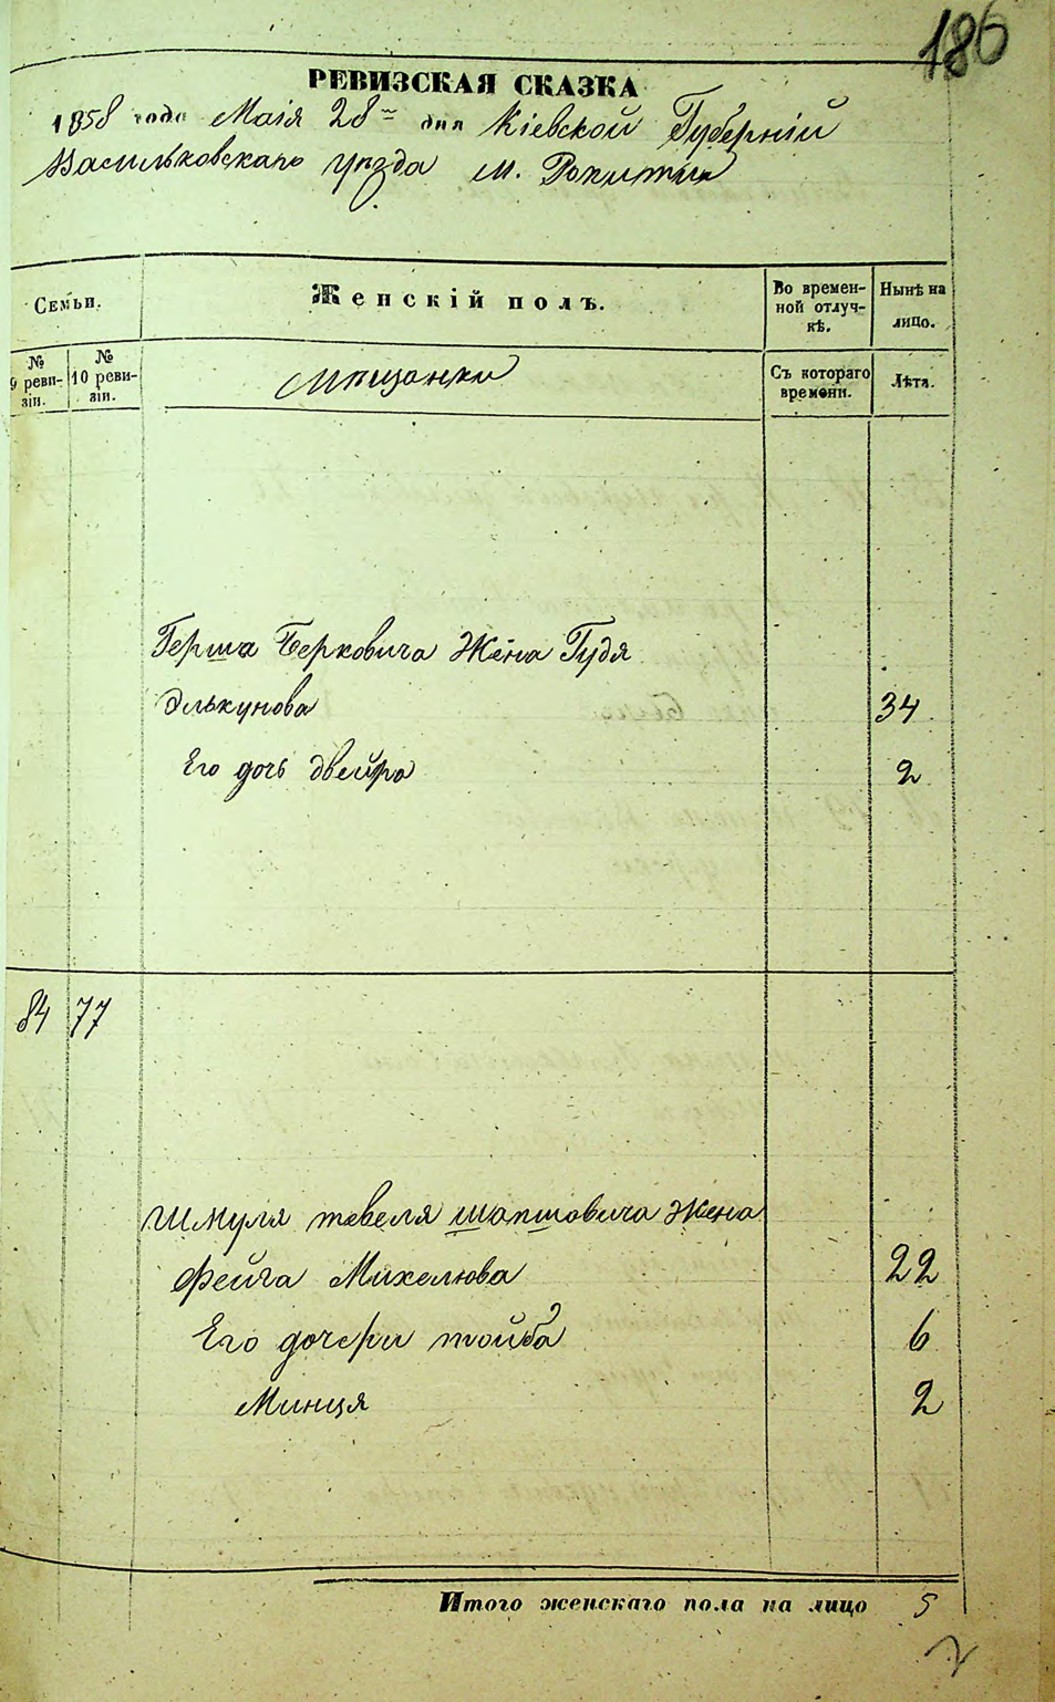 186
РЕВИЗСКАЯ СКАЗКА
1858 года Маія 28 дня Кіевской Губерніи
Васильковскаго уѣзда м. Рокитни
Семьи.
Женскій полъ.
Во времен-
ной отлуч-
кѣ.
Нынѣ на
лицо.
№
9 реви-
зіи.
№
10 реви-
зіи.
Мѣщанки
Съ котораго
времени.
Лѣта.
Герша Берковича Жена Гудя
Элькунова 34
Его дочь Двейра 2
84 77
Шмуля тевеля шапшовича Жена
Фейга Михелюва 22
Его дочери тойба 6
Минця 2
Итого женскаго пола на лицо 5